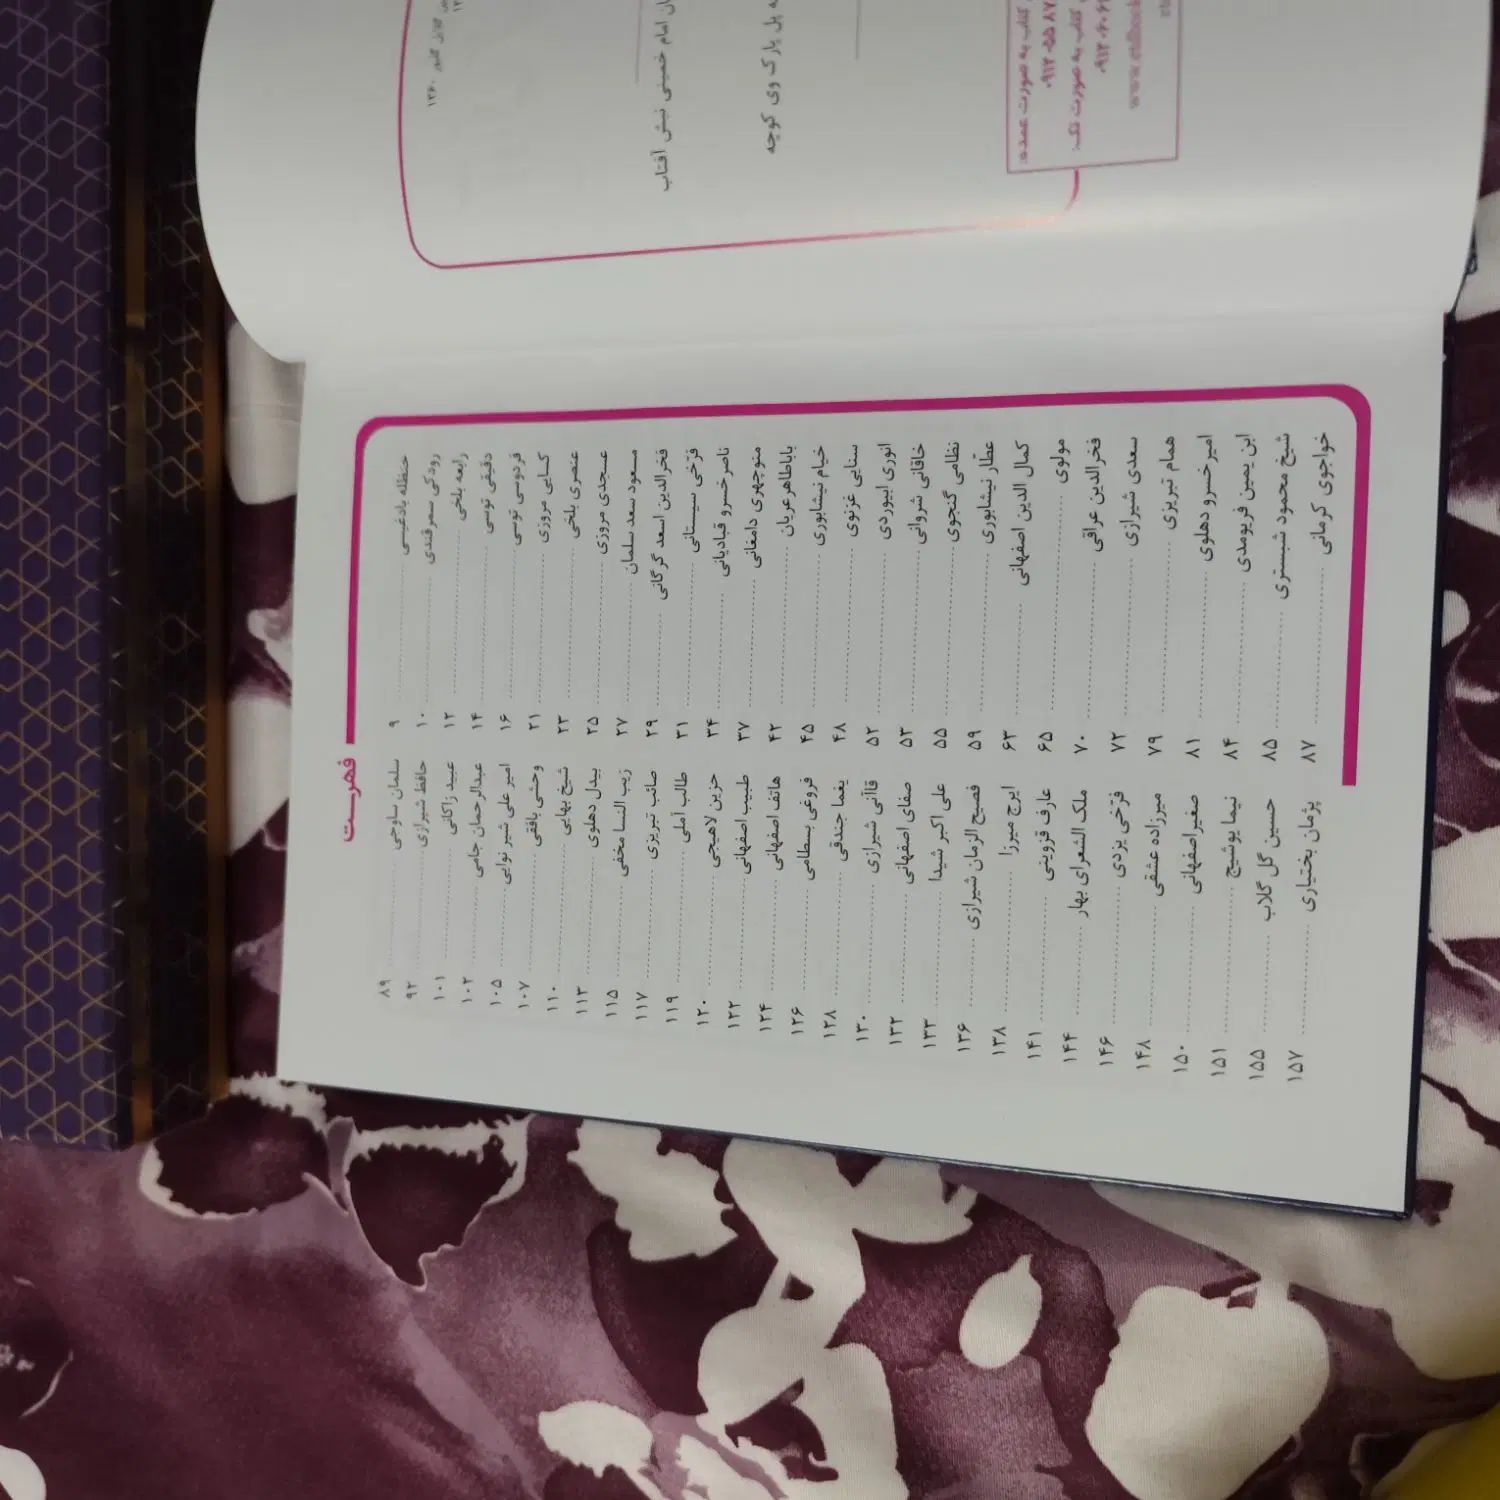 ان امام خمینی نبش آفتاب
ه پل پارک وی کوچه
کتاب به صورت عمده:
کتاب به صورت تک:
فهرست
حنظله بادغیسی ۹
رودکی سمرقندی ۱۰
رابعه بلخی ۱۲
دقیقی توسی ۱۴
فردوسی توسی ۱۶
کسایی مروزی ۲۱
عنصری بلخی ۲۳
عسجدی مروزی ۲۵
مسعود سعد سلمان ۲۷
فخرالدین اسعد گرگانی ۲۹
فرّخی سیستانی ۳۱
ناصر خسرو قبادیانی ۳۴
منوچهری دامغانی ۳۷
باباطاهر عریان ۴۲
خیام نیشابوری ۴۵
سنایی غزنوی ۴۸
انوری ابیوردی ۵۲
خاقانی شروانی ۵۳
نظامی گنجوی ۵۵
عطّار نیشابوری ۵۹
کمال الدین اصفهانی ۶۳
مولوی ۶۵
فخرالدین عراقی ۷۰
سعدی شیرازی ۷۲
همام تبریزی ۷۹
امیرخسرو دهلوی ۸۱
ابن یمین فریومدی ۸۴
شیخ محمود شبستری ۸۵
خواجوی کرمانی ۸۷
سلمان ساوجی ۸۹
حافظ شیرازی ۹۲
عبید زاکانی ۱۰۱
عبدالرحمان جامی ۱۰۲
امیر علی شیر نوایی ۱۰۵
وحشی بافقی ۱۰۷
شیخ بهایی ۱۱۰
بیدل دهلوی ۱۱۳
زیب النسا مخفی ۱۱۵
صائب تبریزی ۱۱۷
طالب آملی ۱۱۹
حزین لاهیجی ۱۲۰
طبیب اصفهانی ۱۲۲
هاتف اصفهانی ۱۲۴
فروغی بسطامی ۱۲۶
یغما جندقی ۱۲۸
قاآنی شیرازی ۱۳۰
صفای اصفهانی ۱۳۲
علی اکبر شیدا ۱۳۳
فصیح الزمان شیرازی ۱۳۶
ایرج میرزا ۱۳۸
عارف قزوینی ۱۴۱
ملک الشعرای بهار ۱۴۴
فرّخی یزدی ۱۴۶
میرزاده عشقی ۱۴۸
صغیر اصفهانی ۱۵۰
نیما یوشیج ۱۵۱
حسین گل گلاب ۱۵۵
پژمان بختیاری ۱۵۷